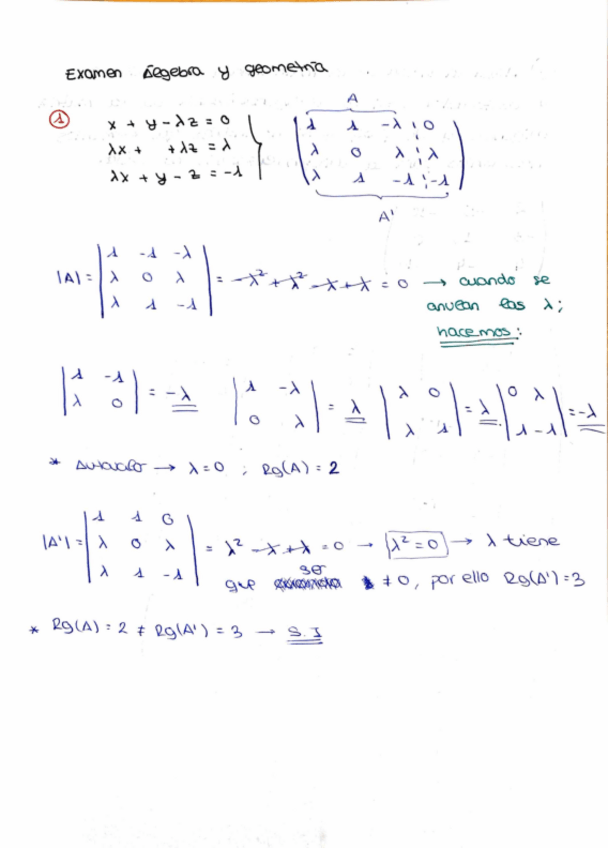 Examen Álgebra y geometría
① x + y - λz = 0
λx + + λz = λ
λx + y - z = -1
A
1 1 -λ 0
λ 0 λ λ
λ 1 -1 -1
A'
|A| = | 1 -1 -λ | λ 0 λ | λ 1 -1 | = -λ² + λ² - λ + λ = 0 → cuando se
anulan las λ;
hacemos:
| 1 -1 | λ 0 | = -λ | 1 -λ | 0 λ | = λ | λ 0 | λ 1 | = λ | 0 λ | 1 -1 | = -λ
* → λ = 0 ; Rg(A) = 2
|A'| = | 1 1 0 | λ 0 λ | λ 1 -1 | = λ² - λ + λ = 0 → λ² = 0 → λ tiene
que ser ≠ 0, por ello Rg(A') = 3
* Rg(A) = 2 ≠ Rg(A') = 3 → S.I